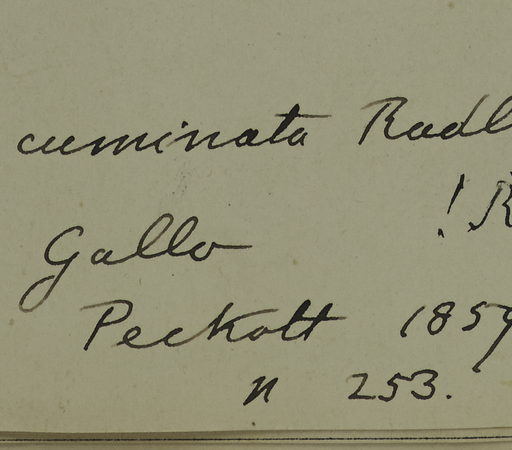 cuminata Radl
! R
Gallo
Peckolt 1859
n 253.